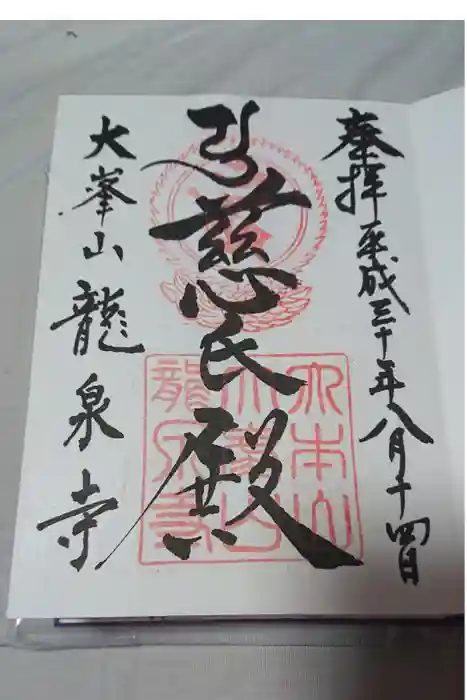 奉拝 平成三十年八月十四日
慈氏殿
大峯山龍泉寺
大本山大峯山龍泉寺